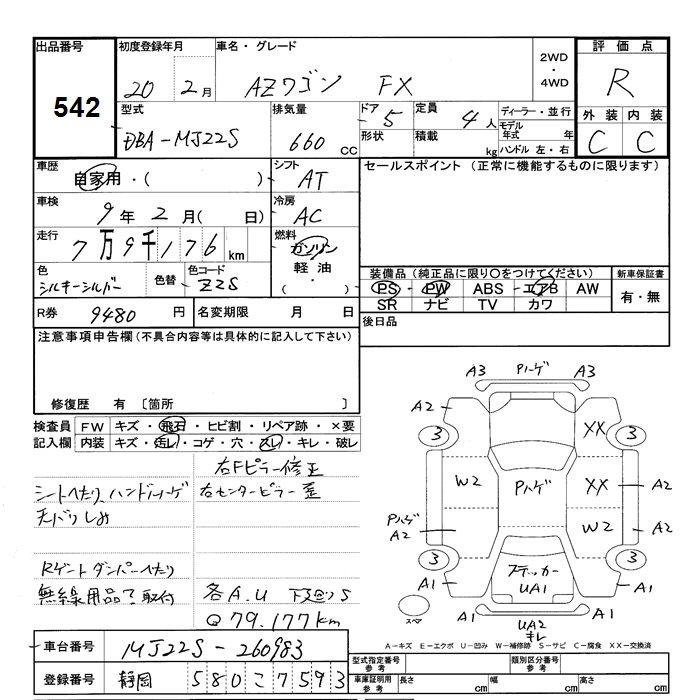 出品番号
542
初度登録年月
20 2月
車名・グレード
AZワゴン FX
2WD・4WD
評価点
R
外装 内装
C C
型式
DBA-MJ22S
排気量
660 cc
ドア 5
形状
定員 4人
積載 kg
ディーラー・並行
モデル年式 年
ハンドル 左・右
車歴
自家用・( )
シフト
AT
セールスポイント (正常に機能するものに限ります)
車検
9年2月( 日)
冷房
AC
走行
7万9千176 km
燃料
ガソリン
軽油
・( )
色
シルキーシルバー
色替
色コード
Z2S
装備品 (純正品に限り○をつけてください)
PS・PW ABS・エアB AW
SR ナビ TV カワ
新車保証書
有・無
R券 9480 円
名変期限 月 日
後日品
注意事項申告欄(不具合内容等は具体的に記入して下さい)
修復歴 有 〔箇所 〕
検査員記入欄
FW キズ・飛石・ヒビ割・リペア跡・×要
内装 キズ・汚レ・コゲ・穴・スレ・キレ・破レ
右Fピラー修正
シートヘたり、ハンドルハゲ
右センターピラー歪
天バリしみ
Rゲートダンパーへたり
無線用品了取付
各A.U 下廻りS
79.177km
車台番号 MJ22S-260983
登録番号 静岡 580 27593
A3 Pハゲ A3
A2
3 XX 3
W2 Pハゲ XX A2
PハゲA2 W2 A2
3 3
A1 ステッカー UA1 A1
A1 A1
スペア
UA2
キレ
A-キズ E-エクボ U-凹み W-補修跡 S-サビ C-腐食 XX-交換済
型式指定番号 参考
類別区分番号 参考
車庫証明用 参考
長さ cm 幅 cm 高さ cm